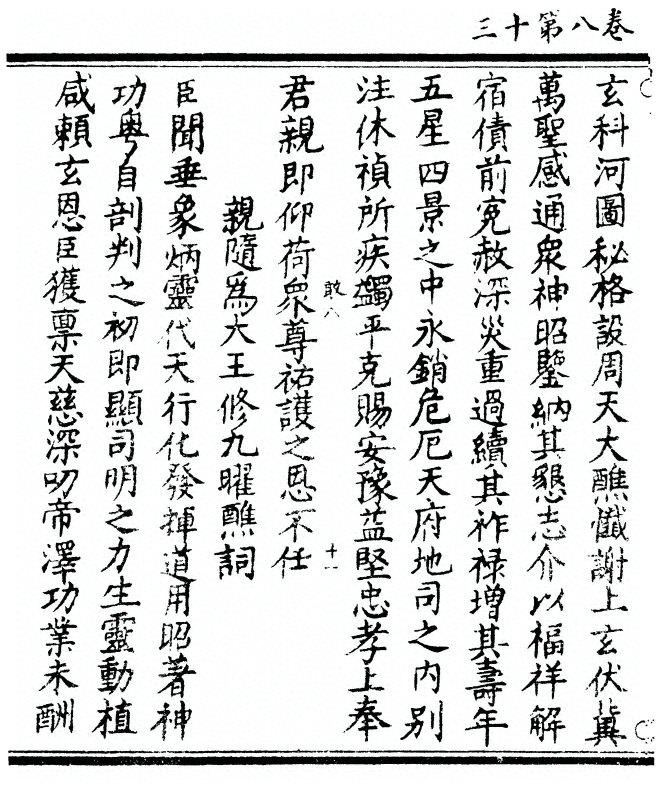 三十第八卷
玄科河圖秘格設周天大醮懺謝上玄伏冀
萬聖感通衆神昭鑒納其懇志介以福祥解
宿債前寃赦深災重過續其祚祿增其壽年
五星四景之中永銷危厄天府地司之内別
注休禎所疾蠲平克賜安豫益堅忠孝上奉
君親即仰荷衆尊祐護之恩不任
敢八
十一
親隨爲大王修九曜醮詞
臣聞垂象炳靈代天行化發揮道用昭著神
功粤自剖判之初即顯司明之力生靈動植
咸賴玄恩臣獲禀天慈深叨帝澤功業未酬